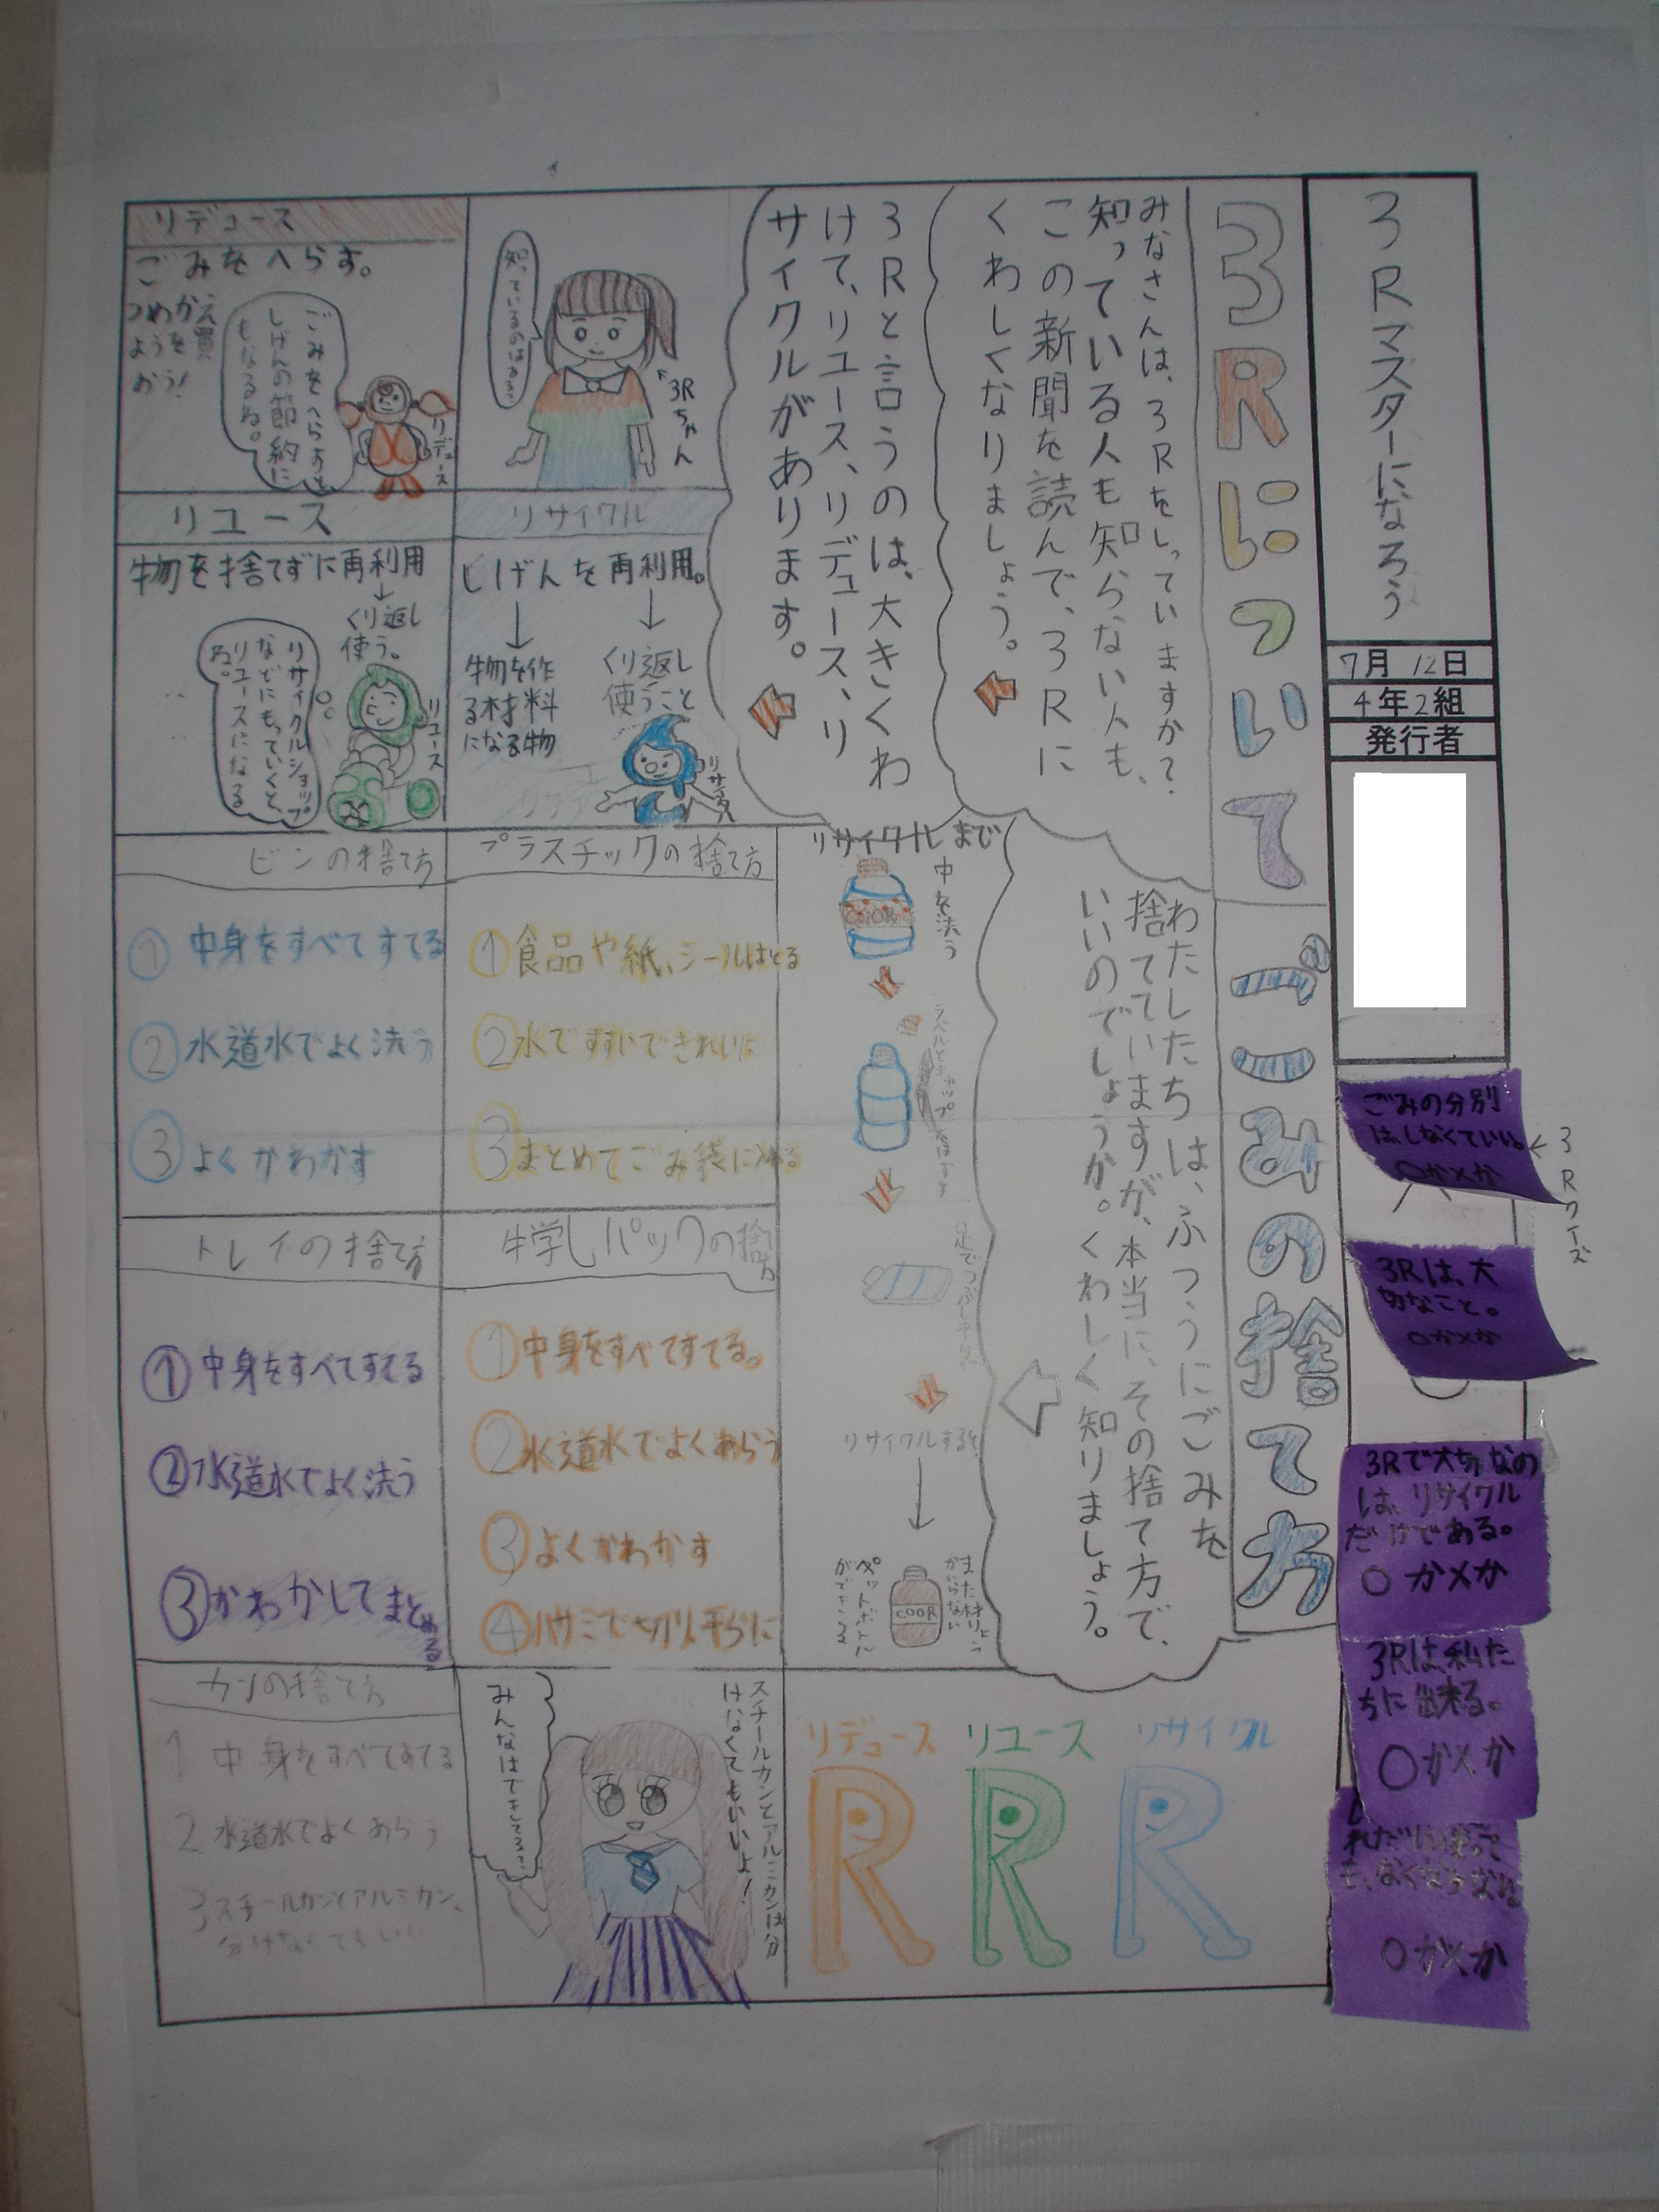 3Rマスターになろう
7月12日
4年2組
発行者
3Rについて
みなさんは、3Rをしっていますか?
知っている人も知らない人も、
この新聞を読んで、3Rに
くわしくなりましょう。
3Rと言うのは、大きくわ
けて、リユース、リデュース、リ
サイクルがあります。
3Rちゃん
リデュース
ごみをへらす。
つめかえ
ようを買
おう!
ごみをへらすと、
しげんの節約に
もなるね。
リデュース
リサイクル
しげんを再利用。
物を作
る材料
になる物
くり返し
使うこと
リサイクル
リユース
物を捨てずに再利用
くり返し
使う。
リサイクルショップ
などにもっていくと、
リユースになる
ね。
リユース
ごみの捨て方
わたしたちは、ふつうにごみを
捨てていますが、本当に、その捨て方で、
いいのでしょうか。くわしく知りましょう。
リサイクルまで
中を洗う
リサイクルすると
また材りょう
ペットボトル
ができる
COOR
プラスチックの捨て方
①食品や紙、シールはとる
②水ですすいできれいに
③まとめてごみ袋に入れる
ビンの捨て方
①中身をすべてすてる
②水道水でよく洗う
③よくかわかす
牛乳パックの捨て方
①中身をすべてすてる。
②水道水でよくあらう
③よくかわかす
④ハサミで切り平らに
トレイの捨て方
①中身をすべてすてる
②水道水でよく洗う
③かわかしてまとめる
カンの捨て方
1中身をすべてすてる
2水道水でよくあらう
3スチールカンとアルミカン、
分けなくてもいい
スチールカンとアルミカンは分
けなくてもいいよ!
みんなはできてる?
リデュース
R
リユース
R
リサイクル
R
3Rクイズ
ごみの分別
はしなくていい。
○か×か
3Rは、大
切なこと。
○か×か
3Rで大切なの
は、リサイクル
だけである。
○か×か
3Rは私た
ちに出来る。
○か×か
れだけ使って
も、なくならない。
○か×か